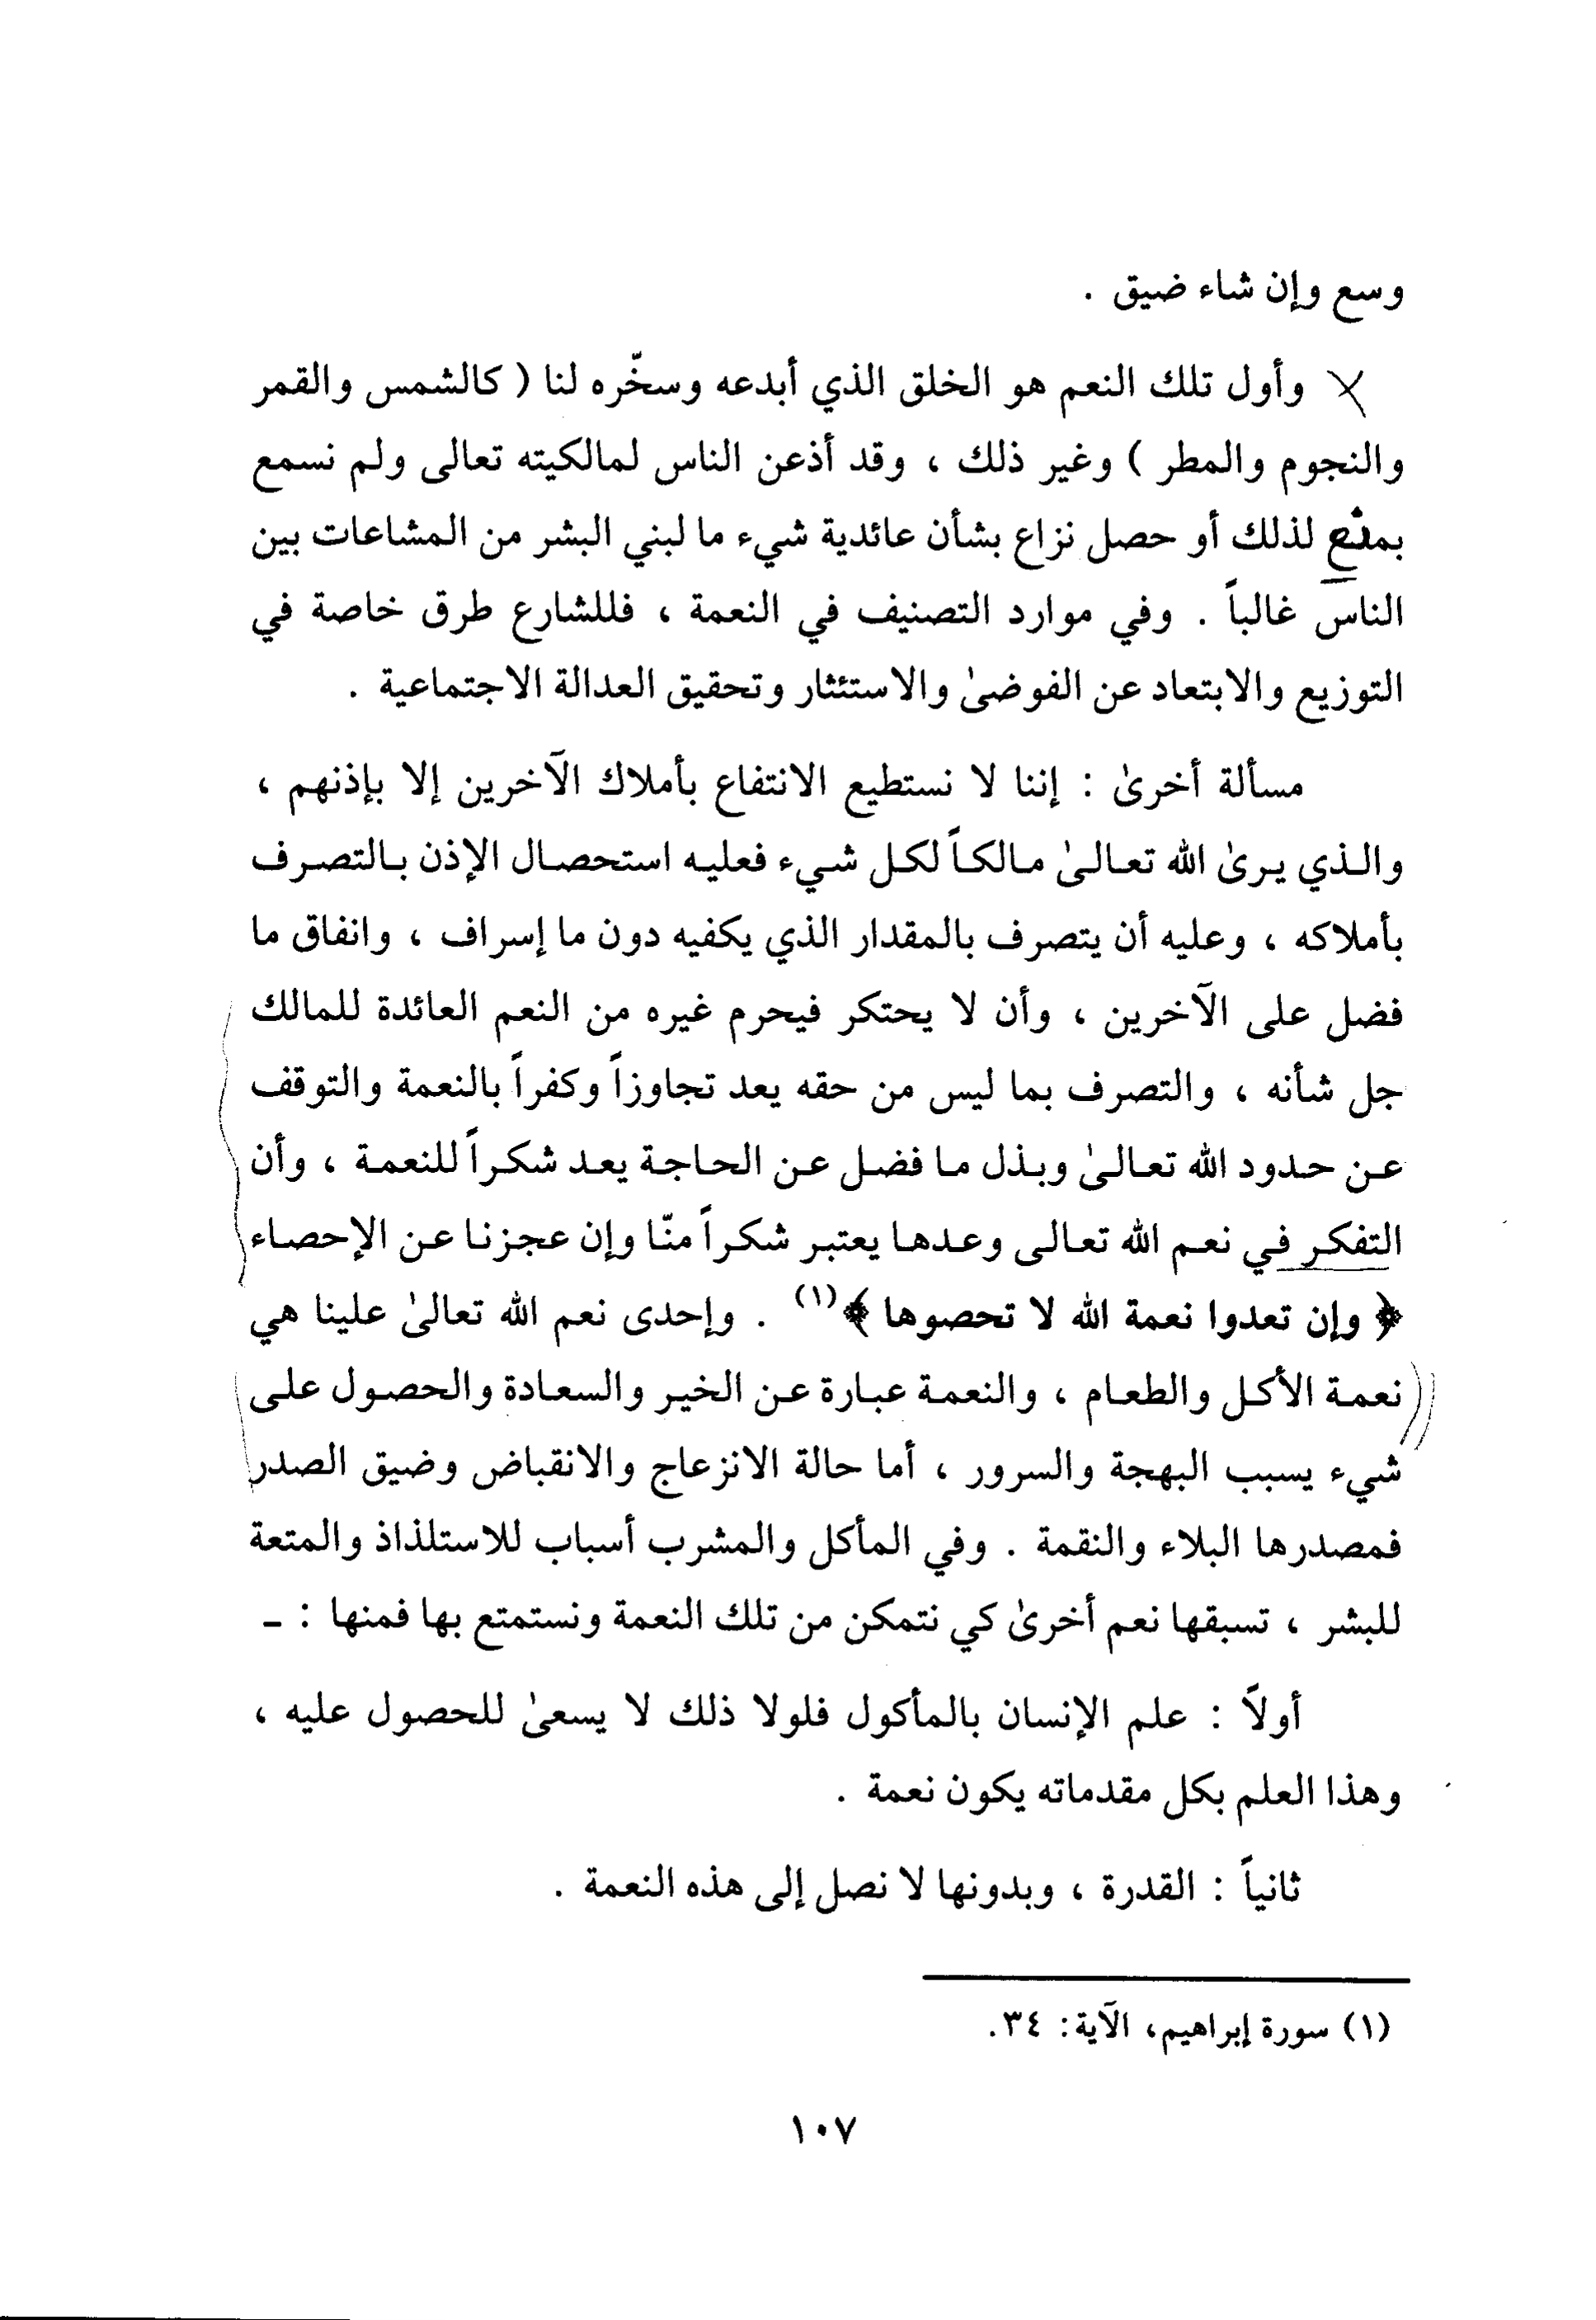 وسع وإن شاء ضيق .
وأول تلك النعم هو الخلق الذي أبدعه وسخّره لنا ( كالشمس والقمر
والنجوم والمطر ) وغير ذلك ، وقد أذعن الناس لمالكيته تعالى ولم نسمع
بمنع لذلك أو حصل نزاع بشأن عائدية شيء ما لبني البشر من المشاعات بين
الناس غالباً . وفي موارد التصنيف في النعمة ، فللشارع طرق خاصة في
التوزيع والابتعاد عن الفوضىٰ والاستئثار وتحقيق العدالة الاجتماعية .
مسألة أخرىٰ : إننا لا نستطيع الانتفاع بأملاك الآخرين إلا بإذنهم ،
والذي يرىٰ الله تعالىٰ مالكاً لكل شيء فعليه استحصال الإذن بالتصرف
بأملاكه ، وعليه أن يتصرف بالمقدار الذي يكفيه دون ما إسراف ، وانفاق ما
فضل على الآخرين ، وأن لا يحتكر فيحرم غيره من النعم العائدة للمالك
جل شأنه ، والتصرف بما ليس من حقه يعد تجاوزاً وكفراً بالنعمة والتوقف
عن حدود الله تعالىٰ وبذل ما فضل عن الحاجة يعد شكراً للنعمة ، وأن
التفكر في نعم الله تعالى وعدها يعتبر شكراً منّا وإن عجزنا عن الإحصاء
﴿ وإن تعدوا نعمة الله لا تحصوها ﴾(١) . وإحدى نعم الله تعالىٰ علينا هي
نعمة الأكل والطعام ، والنعمة عبارة عن الخير والسعادة والحصول على
شيء يسبب البهجة والسرور ، أما حالة الانزعاج والانقباض وضيق الصدر
فمصدرها البلاء والنقمة . وفي المأكل والمشرب أسباب للاستلذاذ والمتعة
للبشر ، تسبقها نعم أخرىٰ كي نتمكن من تلك النعمة ونستمتع بها فمنها : ـ
أولاً : علم الإنسان بالمأكول فلولا ذلك لا يسعىٰ للحصول عليه ،
وهذا العلم بكل مقدماته يكون نعمة .
ثانياً : القدرة ، وبدونها لا نصل إلى هذه النعمة .
(١) سورة إبراهيم، الآية: ٣٤.
١٠٧